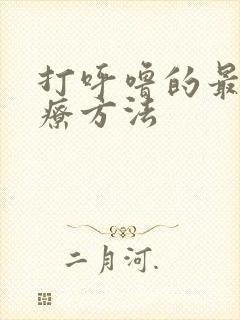 打呼噜的最
疗方法
二月河.